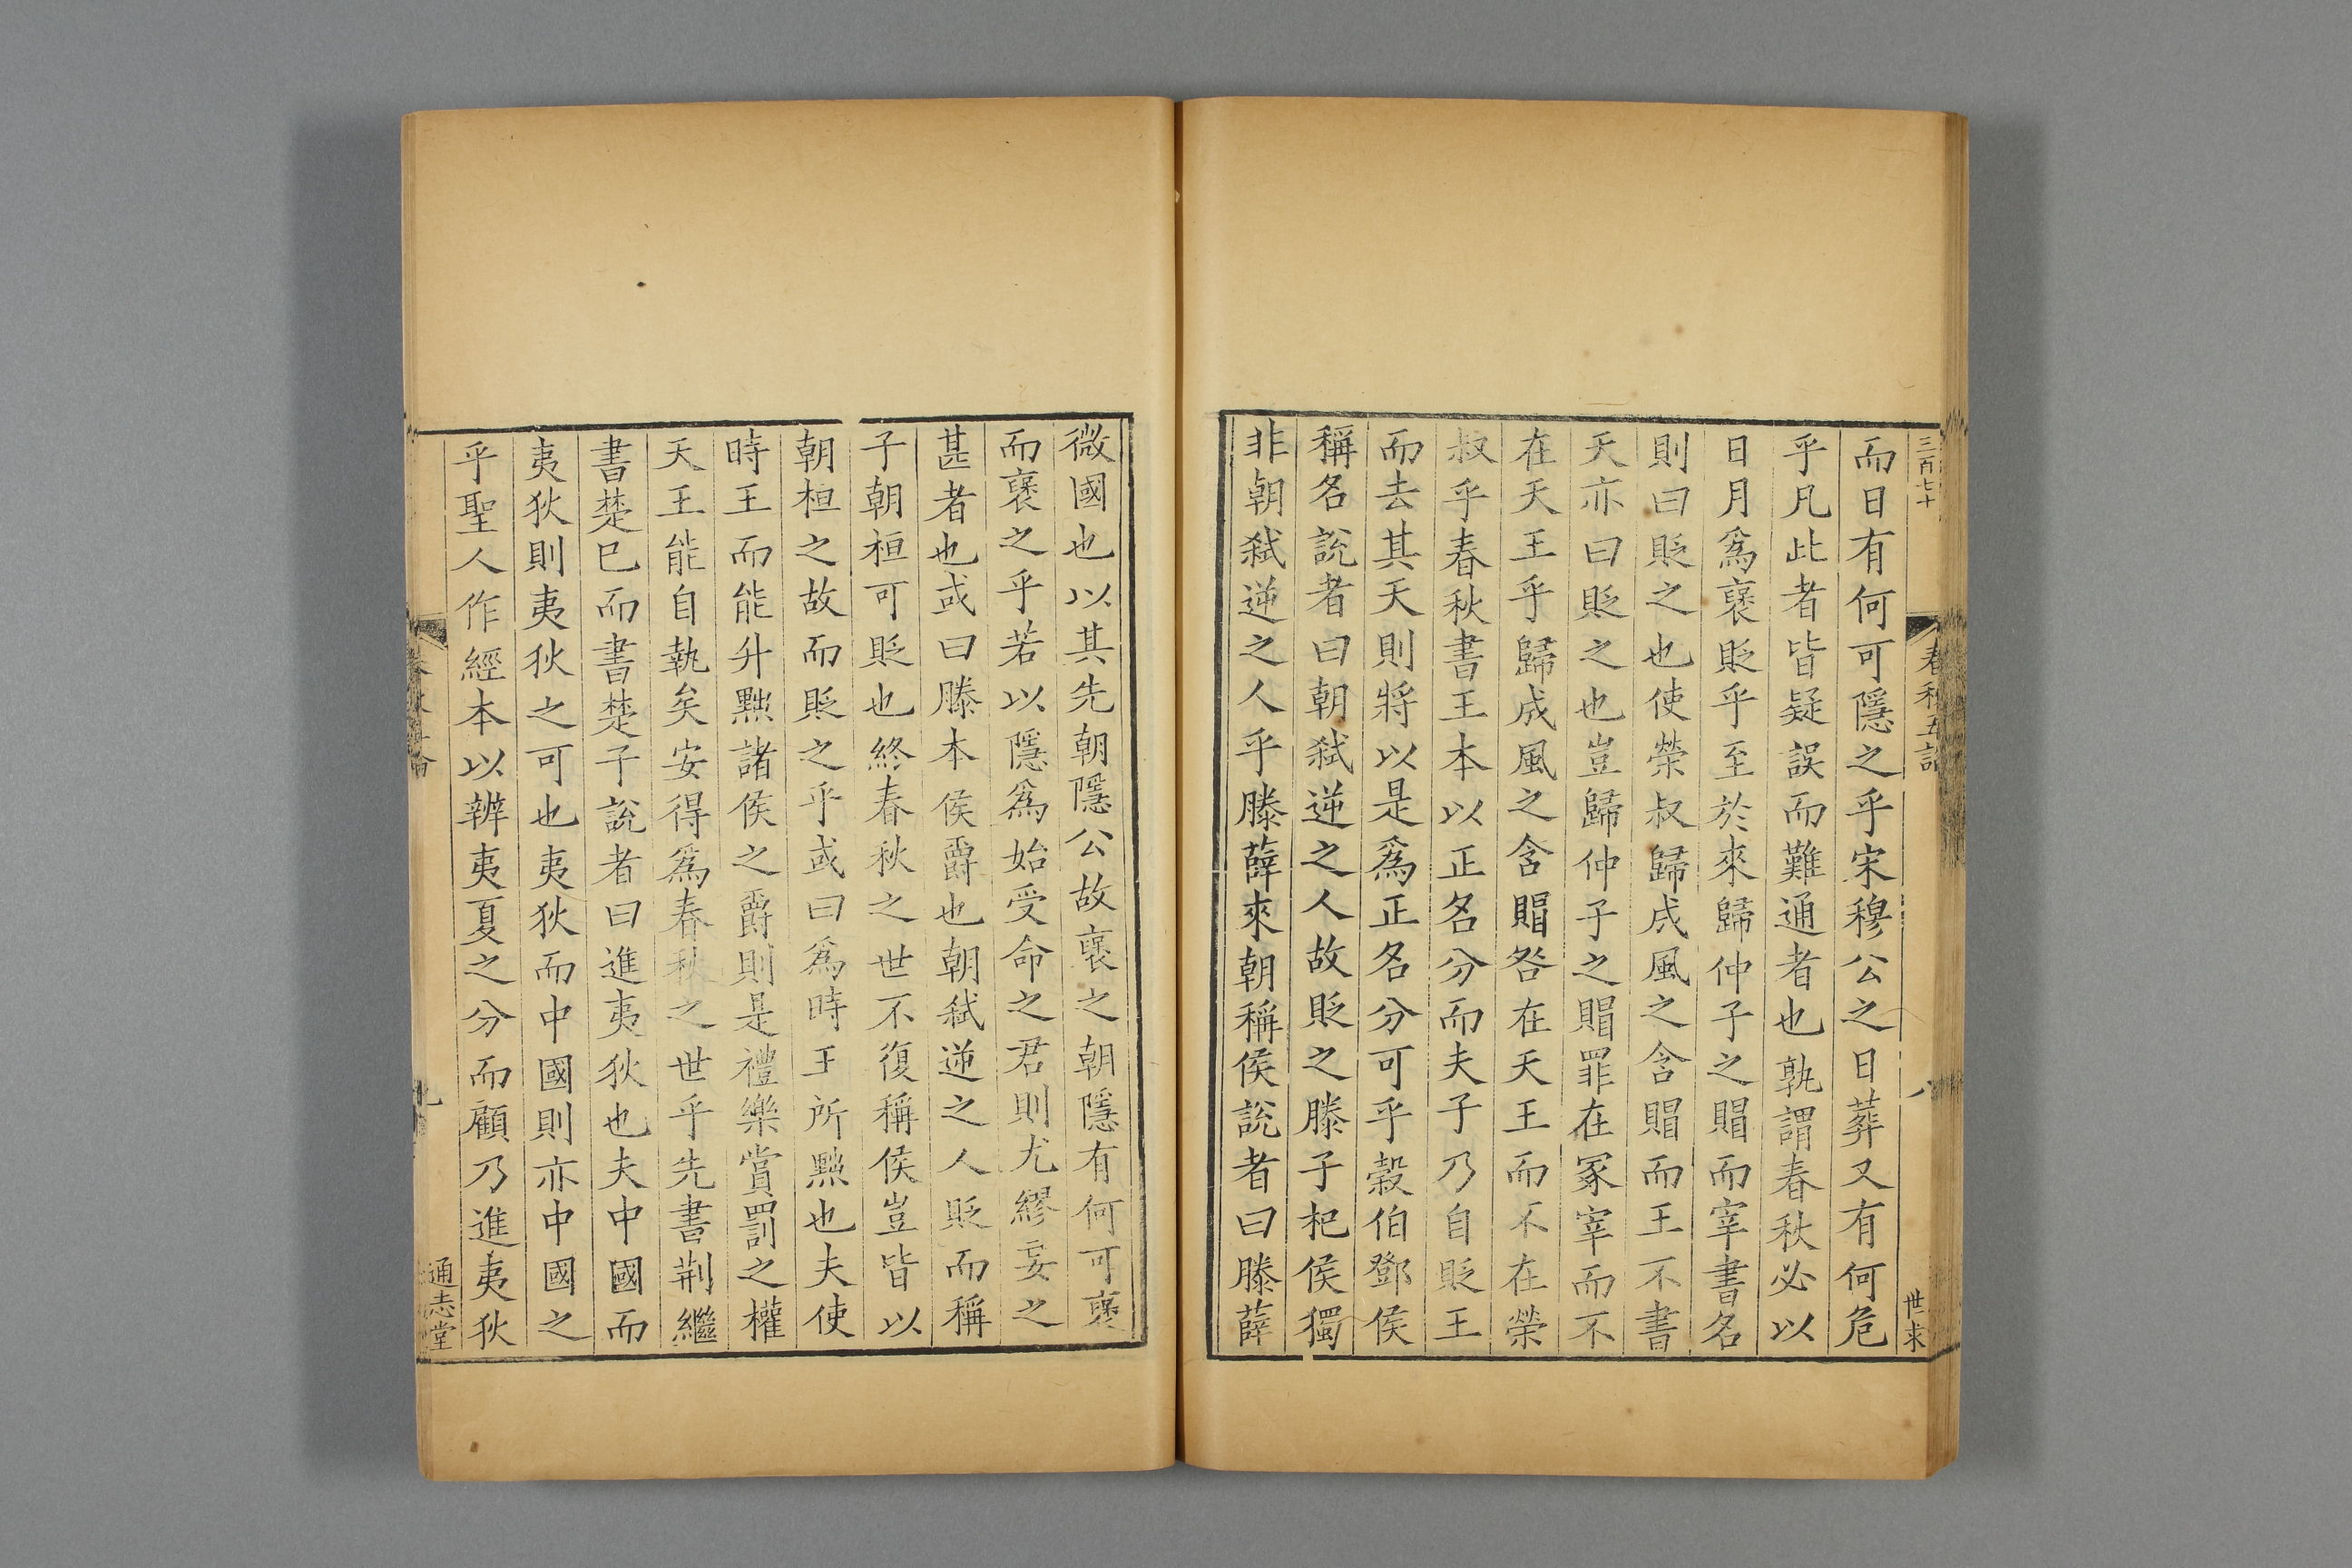 三百七十
春秋五論
八
世求
而日有何可隱之乎宋穆公之日葬又有何危
乎凡此者皆疑誤而難通者也孰謂春秋必以
日月爲褒貶乎至於來歸仲子之賵而宰書名
則曰貶之也使榮叔歸成風之含賵而王不書
天亦曰貶之也豈歸仲子之賵罪在冢宰而不
在天王乎歸成風之含賵咎在天王而不在榮
叔乎春秋書王本以正名分而夫子乃自貶王
而去其天則將以是爲正名分可乎穀伯鄧侯
稱名說者曰朝弑逆之人故貶之滕子杞侯獨
非朝弑逆之人乎滕薛來朝稱侯說者曰滕薛
微國也以其先朝隱公故褒之朝隱有何可褒
而褒之乎若以隱爲始受命之君則尤繆妄之
甚者也或曰滕本侯爵也朝弑逆之人貶而稱
子朝桓可貶也終春秋之世不復稱侯豈皆以
朝桓之故而貶之乎或曰爲時王所黜也夫使
時王而能升黜諸侯之爵則是禮樂賞罰之權
天王能自執矣安得爲春秋之世乎先書荆繼
書楚巳而書楚子說者曰進夷狄也夫中國而
夷狄則夷狄之可也夷狄而中國則亦中國之
乎聖人作經本以辨夷夏之分而顧乃進夷狄
九
通志堂